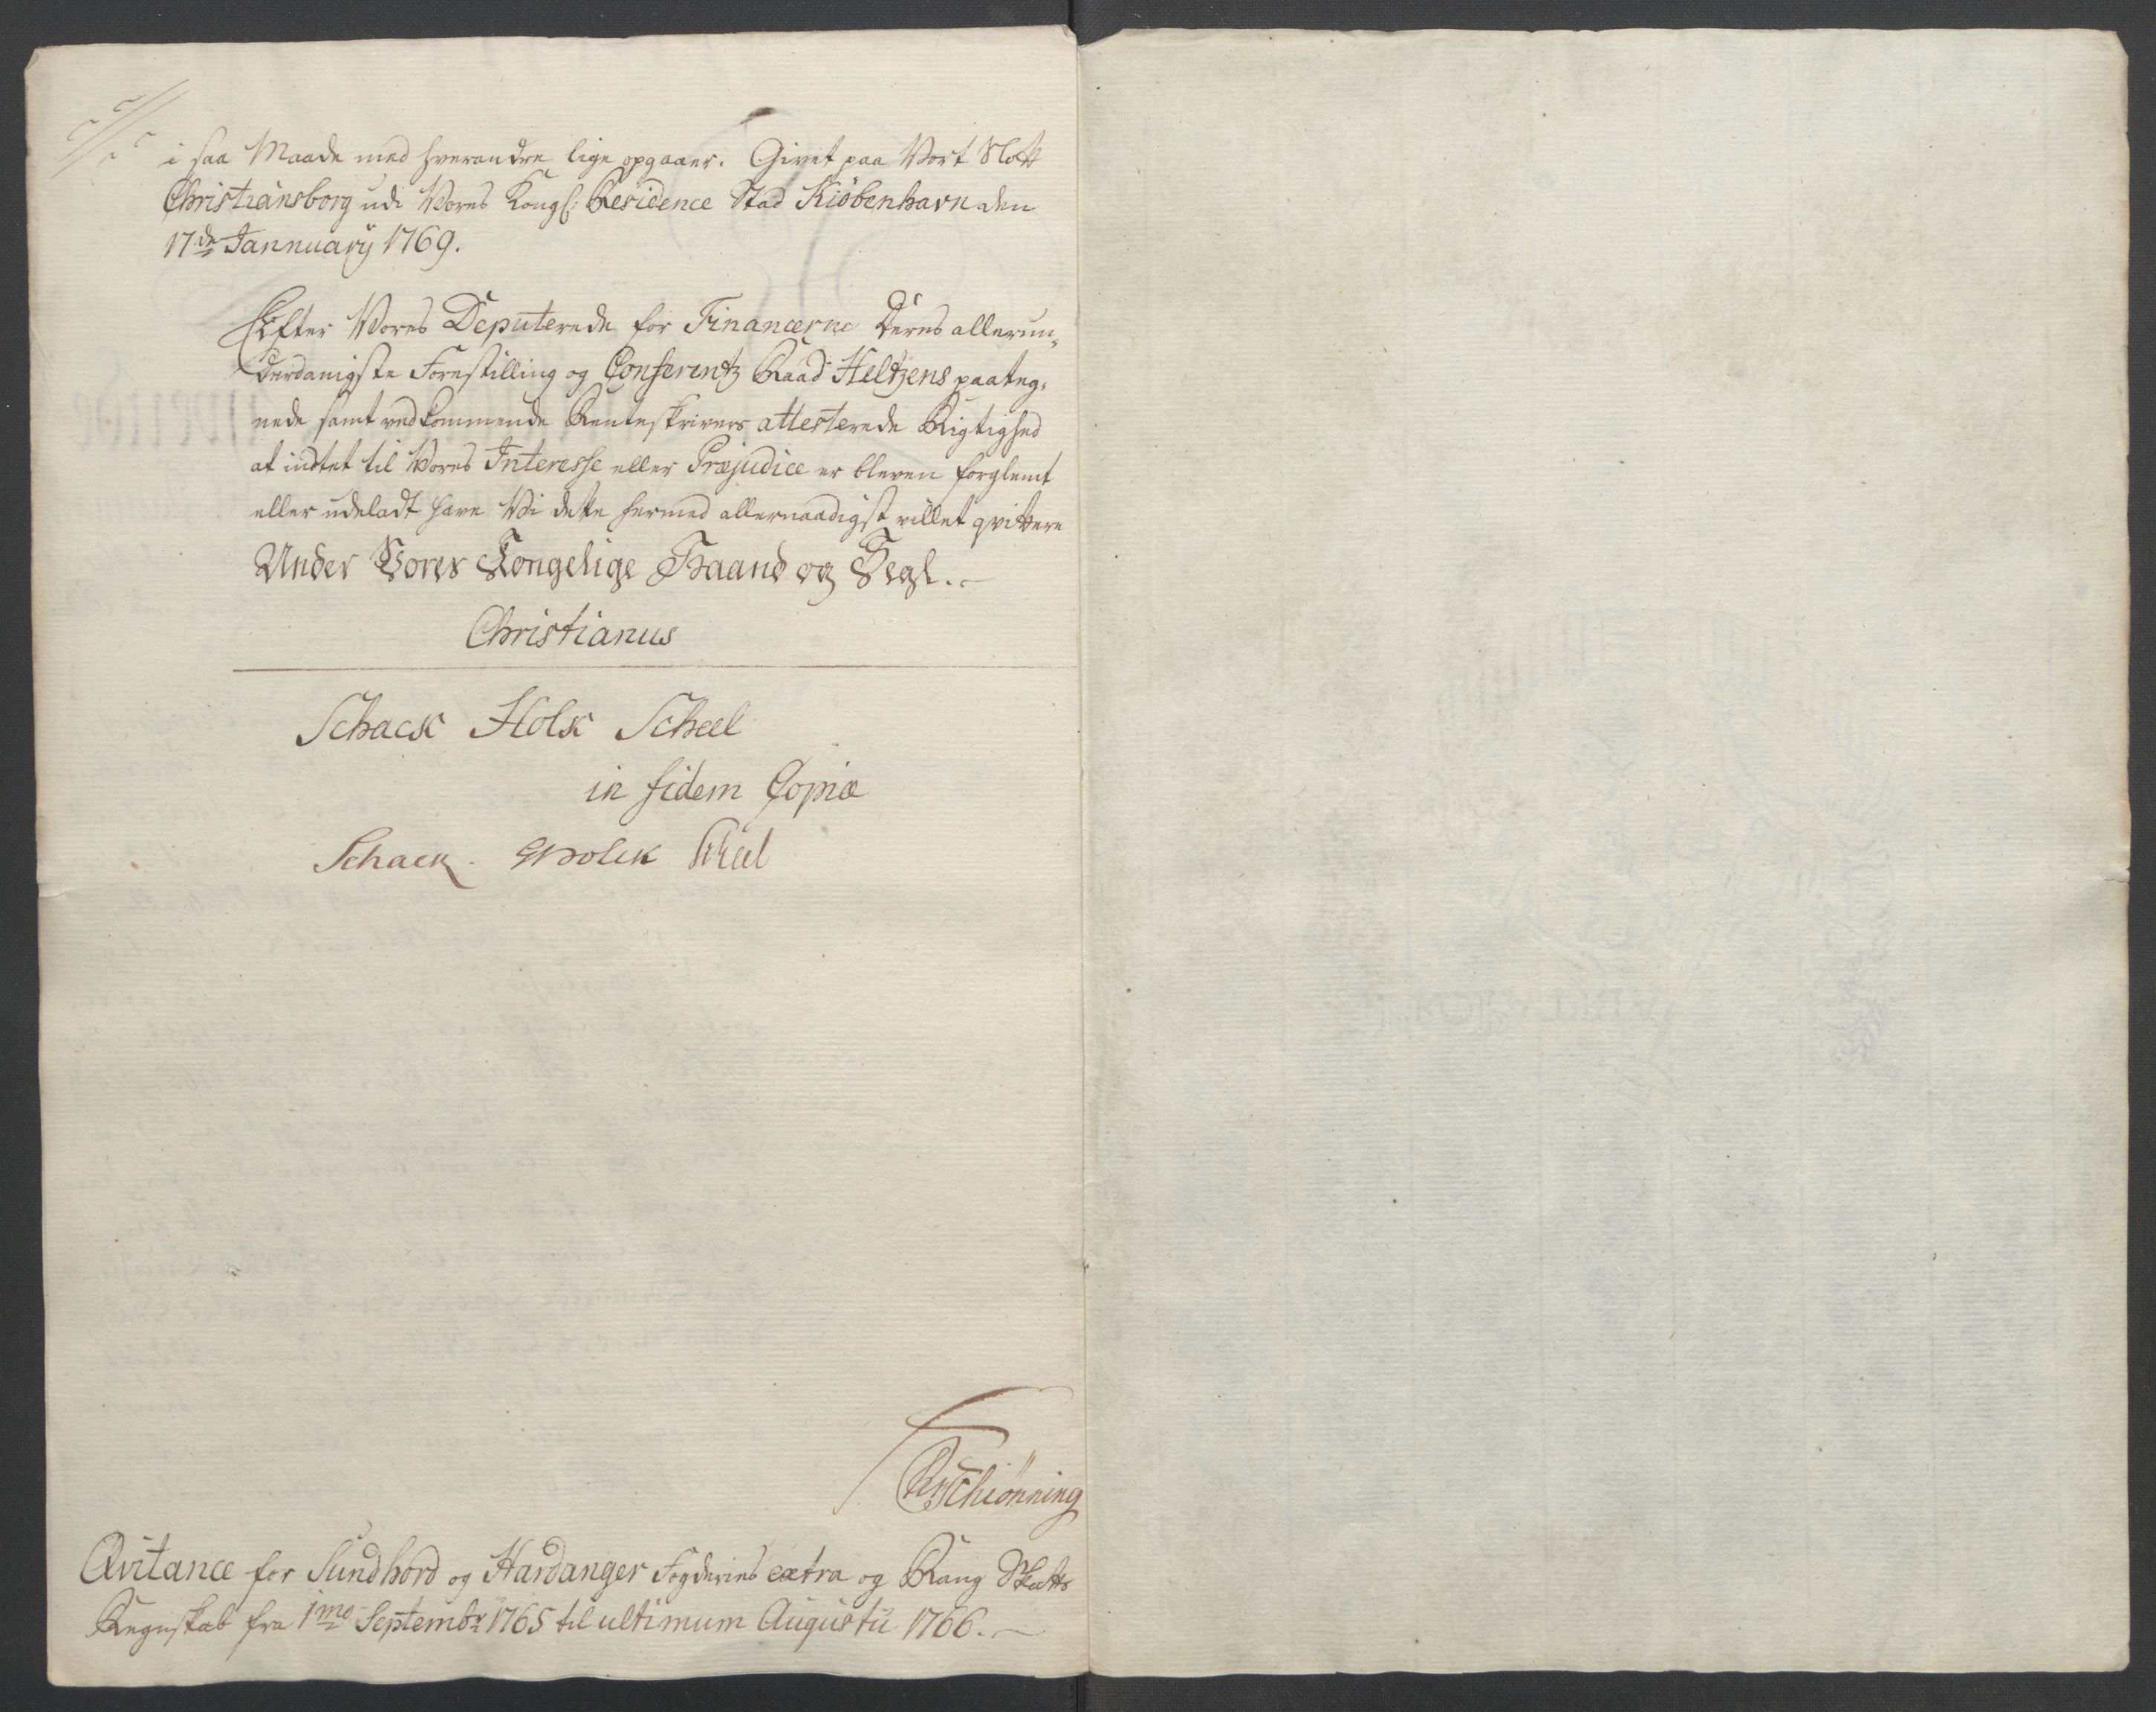 i saa Maade med hverandre lige opgaaer. Givet paa Vort Slott
Christiansborg udi Vores Kongl: Residence Stad Kiöbenhavn den
17de Jannuarÿ 1769.
Efter Vores Deputerede for Financerne Deres allerun„
derdanigste Forestilling og Conferentz Raad Heltzens paateg„
nede samt vedkommende Renteskrivers attesterede Rigtighed
at indtet til Vores Interesse eller Præjudice er bleven forglemt
eller udeladt have Vi dette hermed allernaadigst villet qvittere
Under Vores Kongelige Haand og Segl.
Christianus
Schack Holk Scheel
in fidem Copiæ
Schack Holck Scheel
Schiönning
Qvitance for Sundhord og Hardanger Fogderies extra og Rang Skatts
Regnskab fra 1mo Septembr 1765 til ultimum Augustii 1766.